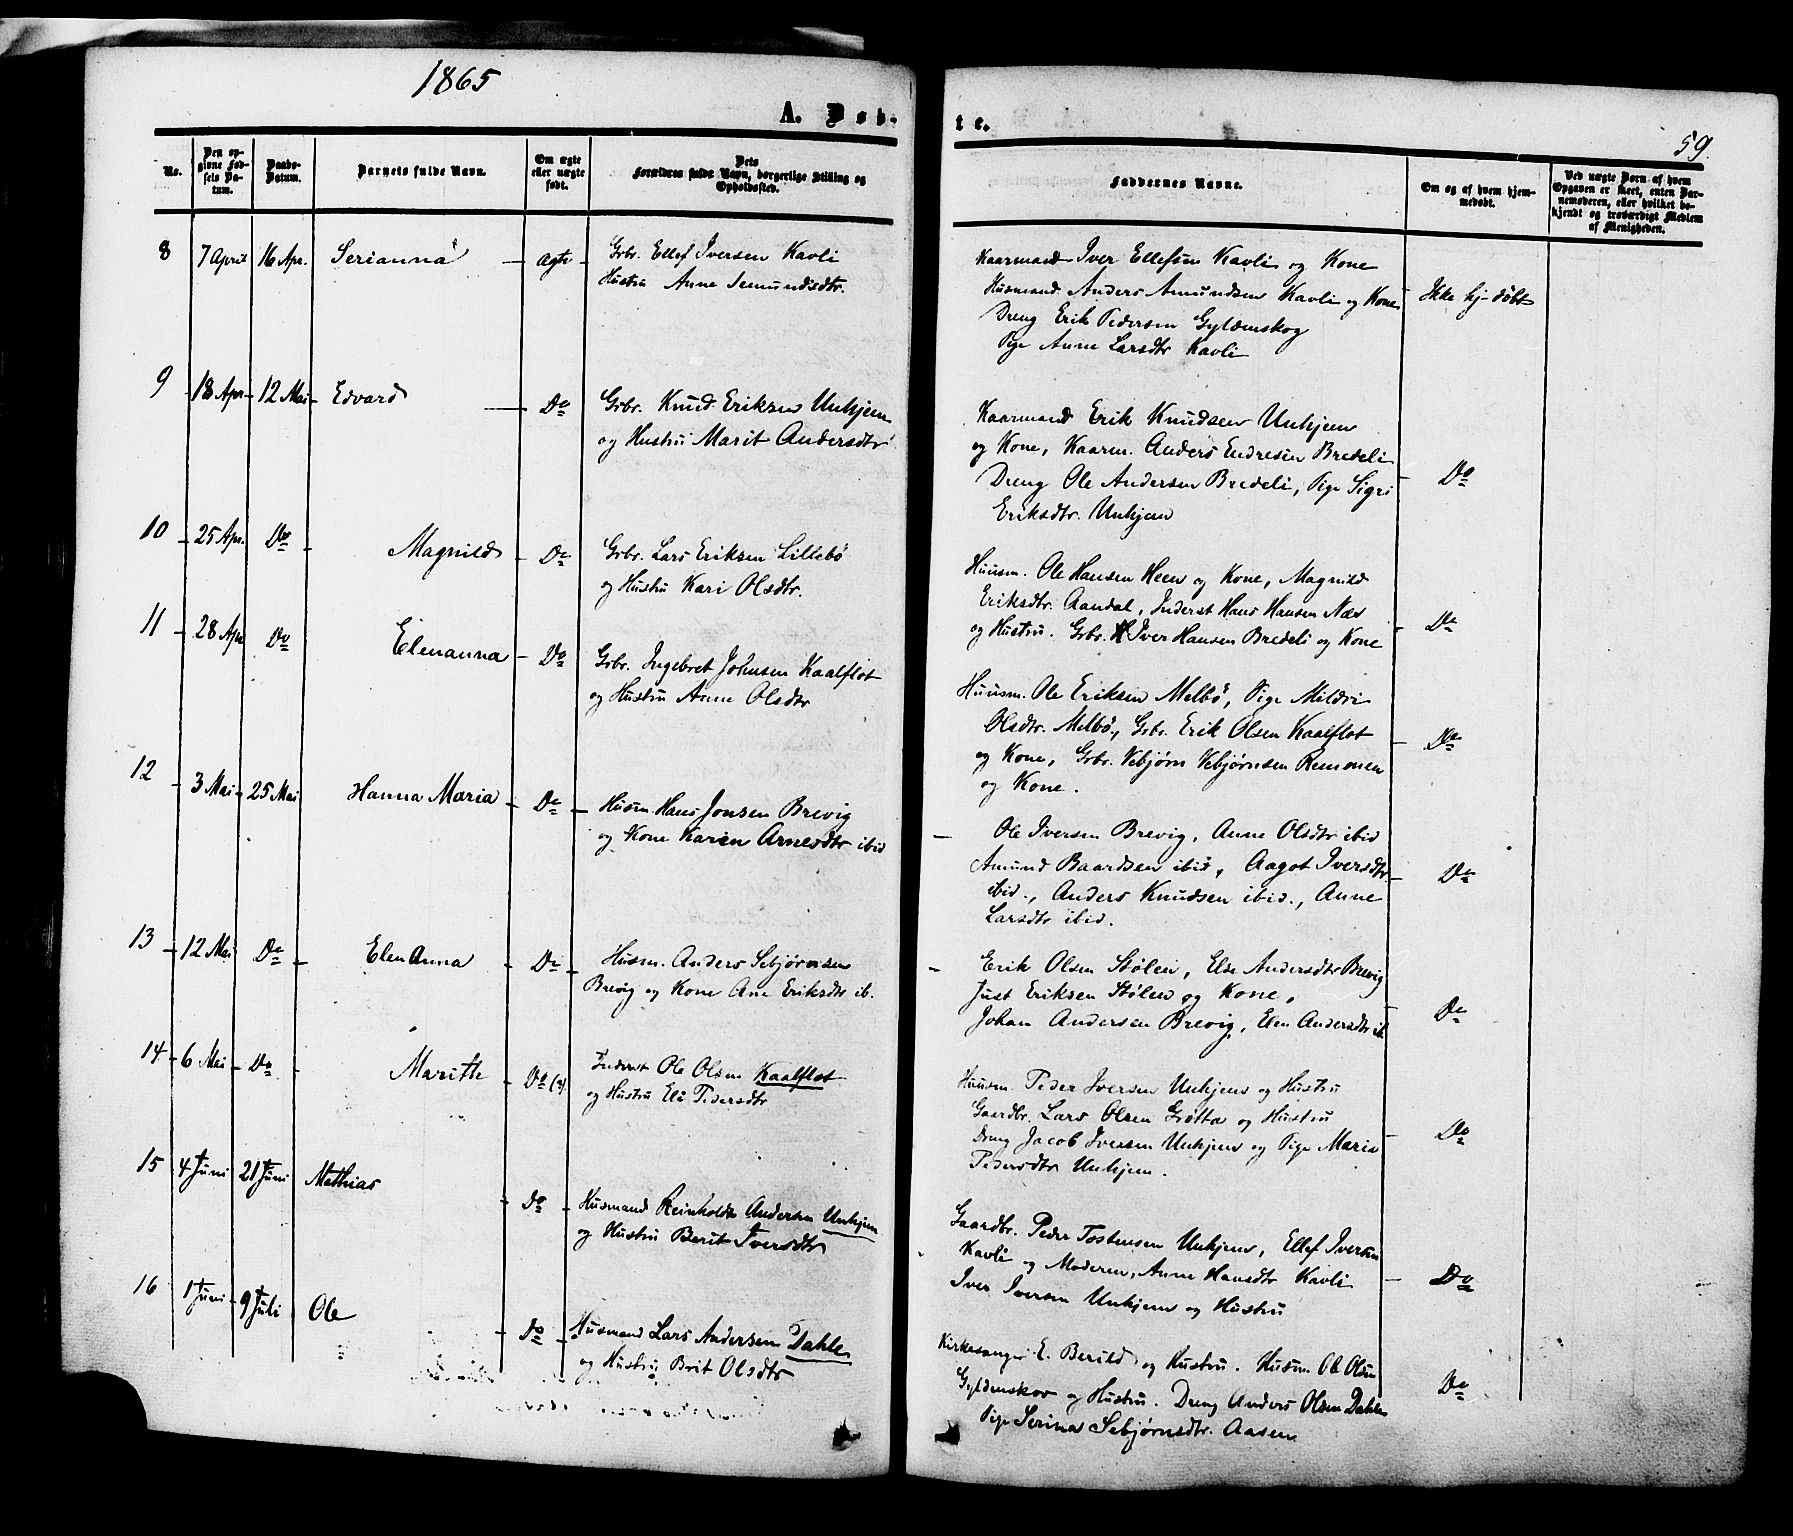 1865
A. Døb-
te.
59.
No.
Den op-
givne Fød-
sels Da-
tum.
Daabs-
Datum.
Barnets fulde Navn.
Om ægte
eller uægte
født.
Dets
Forældres fulde Navn, borgerlige Stilling og
Opholdssted.
Faddernes Navne.
Om og af hvem hjem-
medøbt.
Ved uægte Børn af hvem
Opgaven er skeet, enten Bar-
nemoderen, eller hvilket be-
kjendt og troværdigt Medlem
af Menigheden.
8 7 April 16 Apr. Serianna ægte Grbr. Ellef Iversen Kavli
Hustru Anne Semundsdtr.
Kaarmand Iver Ellefsen Kavli og Kone
Husmand Anders Amundsen Kavli og Kone Ikke hj-døbt
Dreng Erik Pedersen Gyldenskog
Pige Anne Larsdtr Kavli
9 18 Apr 12 Mai Edvard Do Grbr. Knud Eriksen Unhjem
og Hustru Marit Andersdtr
Kaarmand Erik Knudsen Unhjem
og Kone, Kaarm. Anders Endresen Bredeli
Dreng Ole Andersen Bredeli, Pige Sigri Do
Eriksdtr. Unhjem
10 25 Apr. Do Magnild Do Grbr. Lars Eriksen Lillebö
og Hustru Kari Olsdtr.
Huusm. Ole Hansen Heen og Kone, Magnild
Eriksdtr. Aandal, Inderst Hans Hansen Næs
og Hustru. Grbr. Iver Hansen Bredeli og Kone Do
11 28 Apr Do Elenanna Do Grbr. Ingebret Johnsen Kaalflot
og Hustru Anne Olsdtr
Huusm. Ole Eriksen Melbö, Pige Mildri
Olsdtr. Melbö, Grbr. Erik Olsen Kaalflot
og Kone, Grbr. Vebjørn Vebjørnsen Remmen Do
og Kone.
12 3 Mai 25 Mai Hanna Maria Do Husm. Hans Jonsen Brevig
og Kone Karen Arnesdtr ibid
Ole Iversen Brevig, Anne Olsdtr ibid
Amund Baardsen ibid, Aagot Iversdtr Do
ibid., Anders Knudsen ibid., Anne
Larsdtr ibid.
13 12 Mai Do Elen Anna Do Husm. Anders Sebjørnsen
Brevig og Kone Ane Eriksdtr ib.
Erik Olsen Stølen, Else Andersdtr Brevig
Just Eriksen Stølen og Kone,
Johan Andersen Brevig, Elen Andersdtr ib. Do
14 6 Mai Do Marith Do Inderst Ole Olsen Kaalflot
og Hustru Eli Pedersdtr
Huusm. Peder Iversen Unhjem og Hustru
Gaardbr. Lars Olsen Grøtta og Hustru
Dreng Jacob Iversen Unhjem og Pige Maria Do
Pedersdtr Unhjem.
15 4 Juni 21 Juni Mathias Do Husmand Reinholdt Andersen Unhjem
og Hustru Berit Iversdtr
Gaardbr. Peder Tostensen Unhjem, Ellef Iversen
Kavli og Moderen, Anne Hansdtr Kavli Do
Iver Iversen Unhjem og Hustru
16 1 Juni 9 Juli Ole Do Husmand Lars Andersen Dahle
og Hustru Brit Olsdtr
Kirkesanger E. Berild og Hustru. Husm. Ole Olsen
Gyldenskov og Hustru. Dreng Anders Olsen Dahle Do
Pige Serina Sebjørnsdtr. Aasen